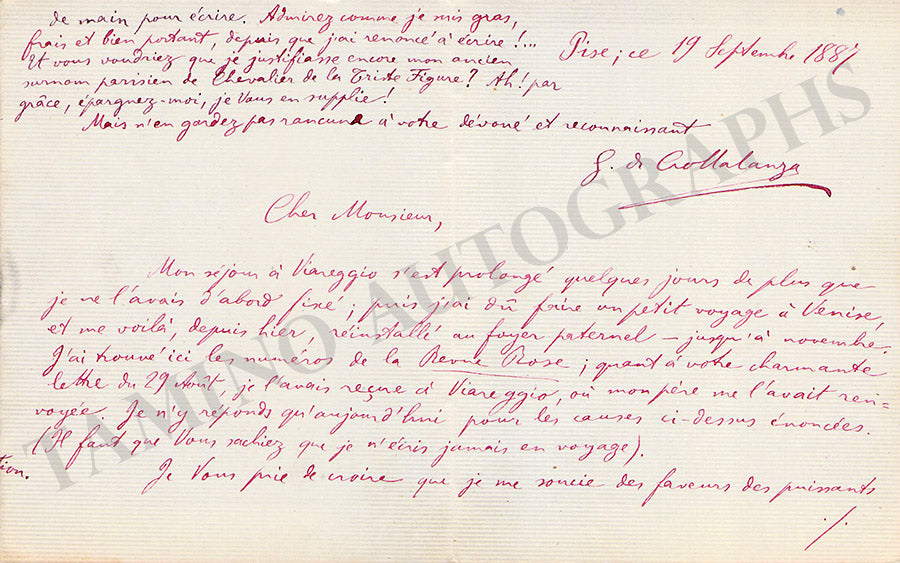 de main pour écrire. Admirez comme je suis gras,
frais et bien portant, depuis que j'ai renoncé à écrire !...
Et vous voudriez que je justifiasse encore mon ancien
surnom parisien de Chevalier de la Triste Figure ? Ah ! par
grâce, épargnez-moi, je Vous en supplie !
Mais n'en gardez pas rancune à votre dévoué et reconnaissant
G. de Crollalanza
Pise, ce 19 Septembre 1887
Cher Monsieur,
Mon séjour à Viareggio s'est prolongé quelques jours de plus que
je ne l'avais d'abord fixé ; puis j'ai dû faire un petit voyage à Venise,
et me voilà, depuis hier, réinstallé au foyer paternel — jusqu'à novembre.
J'ai trouvé ici les numéros de la Revue Rose ; quant à votre charmante
lettre du 29 Août, je l'avais reçue à Viareggio, où mon père me l'avait ren=
voyée. Je n'y réponds qu'aujourd'hui pour les causes ci-dessus énoncées.
(Il faut que Vous sachiez que je n'écris jamais en voyage).
tion.
Je Vous prie de croire que je me soucie des faveurs des puissants
./.
TAMINO AUTOGRAPHS